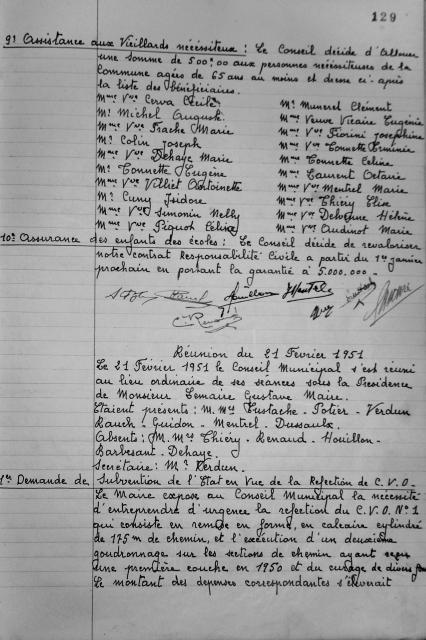 129
9º Assistance aux Vieillards nécessiteux : Le Conseil décide d'allouer
une somme de 500,00 aux personnes nécessiteuses de la
Commune agées de 65 ans au moins et dresse ci-après
la liste des bénéficiaires.
Mme Vve Cerva Cécile
Mr Michel Auguste
Mme Vve Frache Marie
Mr Colin Joseph
Mme Vve Dehaye Marie
Mr Tonnette Eugène
Mme Vve Villiet Antoinette
Mr Cuny Isidore
Mme Vve Simonin Nelly
Mme Vve Piquot Céline
Mr Munerel Clément
Mme Veuve Vicaire Eugénie
Mme Vve Fiorini Joséphine
Mme Vve Tonnette Erminie
Mme Tonnette Céline
Mr Laurent Octave
Mme Vve Mentrel Marie
Mme Vve Thiéry Elise
Mme Vve Hélène
Mme Vve Audinot Marie
10º Assurance des enfants des écoles : Le Conseil décide de revaloriser
notre contrat Responsabilité Civile a partir du 1er janvier
prochain en portant la garantie à 5.000.000 -
Réunion du 21 Février 1951
Le 21 Février 1951 le Conseil Municipal s'est réuni
au lieu ordinaire de ses séances sous la Présidence
de Monsieur Lemaire Gustave Maire.
Etaient présents : M. Mrs Eustache - Potier - Verdun
Rauch - Guidon - Mentrel - Dussaulx.
Absents : M. Mrs Thiéry - Renaud - Houillon -
Barbesant - Dehaye.
Secrétaire : Mr Verdun.
1º Demande de Subvention de l'Etat en Vue de la Refection de C.V.O.
Le Maire expose au Conseil Municipal la nécessité
d'entreprendre d'urgence la refection du C.V.O. Nº 1
qui consiste en remise en forme, en calcaire cylindré
de 175 m de chemin, et l'exécution d'un deuxième
goudronnage sur les sections de chemin ayant reçu
une première couche en 1950 et du curage de divers
le montant des depenses correspondantes s'éleverait